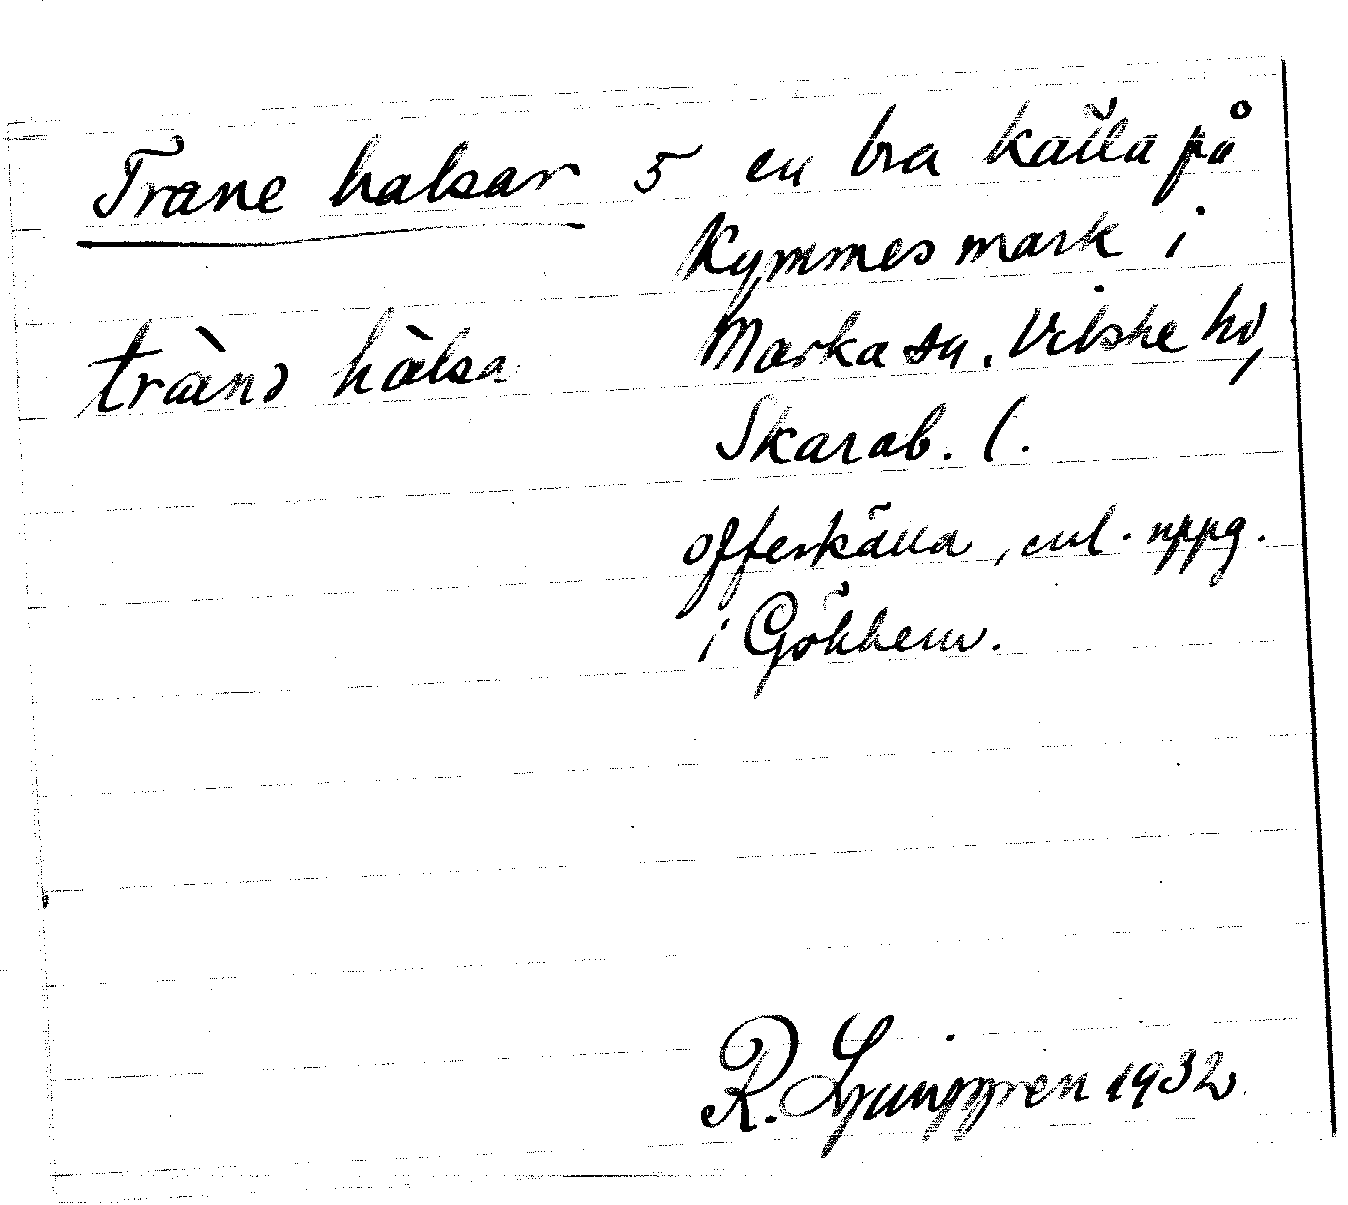 Trane halsar 5 en bra källa på
Kymmes mark i
Marka sn. Vilske hd,
Skarab. l.
trànə hàlsa
offerkälla, enl. uppg.
i Gökhem.
R. Ljunggren 1932